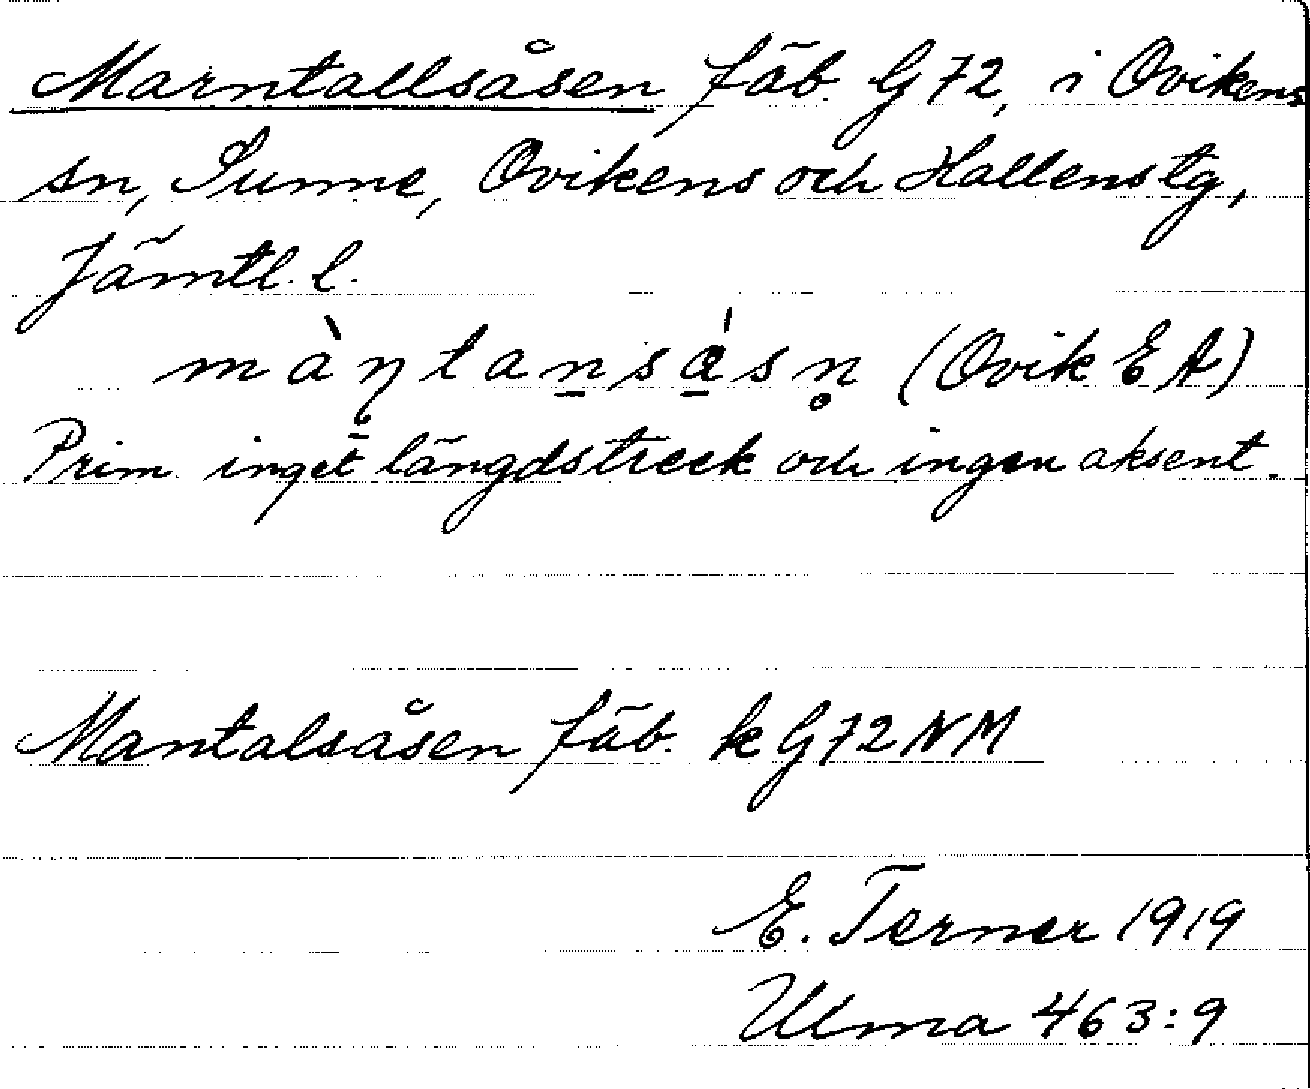 Marntallsåsen fäb. G 72, i Ovikens
sn, Sunne, Ovikens och Hallens tg,
Jämtl. l.
(Ovik E A)
Prim. inget längdstreck och ingen aksent.
Mantalsåsen fäb. k G 72 NM
E. Terner 1919
Ulma 463:9